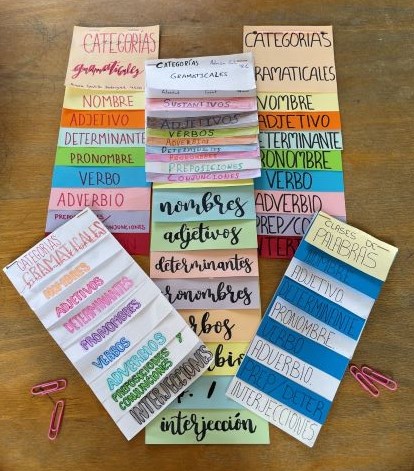 CATEGORÍAS
gramaticales
NOMBRE
ADJETIVO
DETERMINANTE
PRONOMBRE
VERBO
ADVERBIO
CATEGORÍAS
GRAMATICALES
SUSTANTIVOS
ADJETIVOS
VERBOS
ADVERBIOS
DETERMINANTES
PREPOSICIONES
CONJUNCIONES
CATEGORIAS
GRAMATICALES
NOMBRE
ADJETIVO
DETERMINANTE
PRONOMBRE
VERBO
ADVERBIO
PREP/CO
INTER
nombres
adjetivos
determinantes
pronombres
rbos
bio
interjección
CATEGORÍAS
GRAMATICALES
NOMBRES
ADJETIVOS
DETERMINANTES
PRONOMBRES
VERBOS
ADVERBIOS
PREPOSICIONES Y
CONJUNCIONES
INTERJECCIONES
CLASES DE
PALABRAS
ADJETIVO
DETERMINANTE
PRONOMBRE
VERBO
ADVERBIO
PREP/DETER
INTERJECCIONES